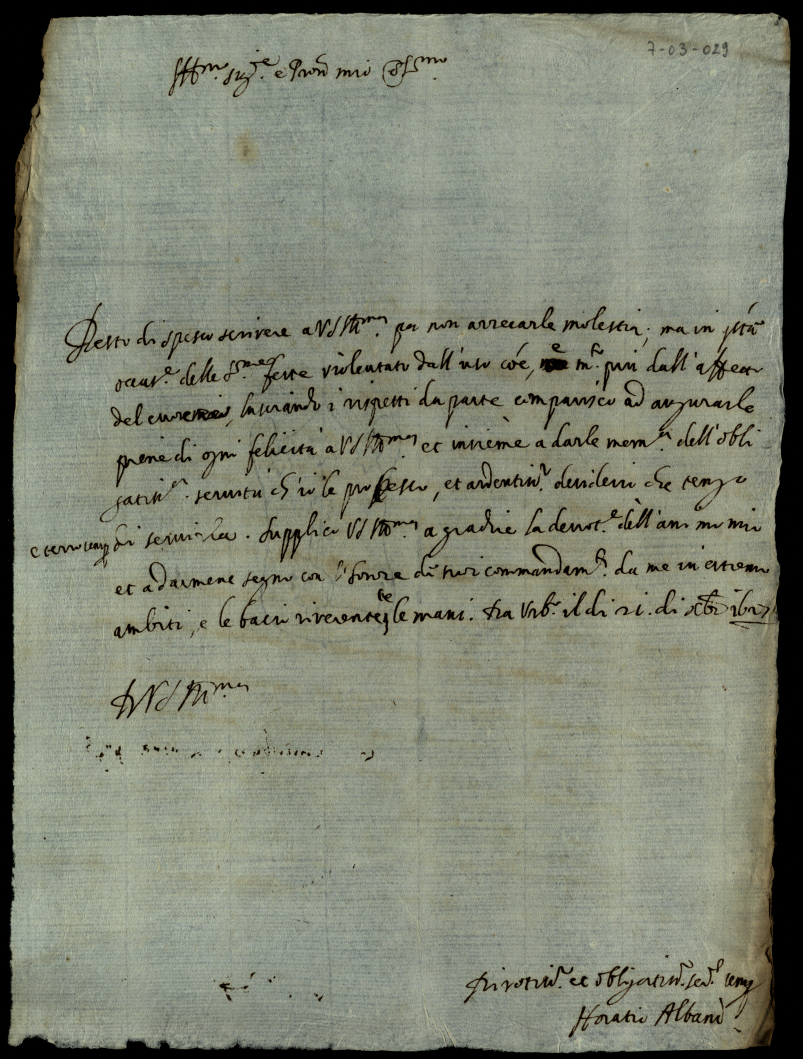 7-03-029
Ill.mo Sig.re e Pron mio Oss.mo
Resto di spesso scrivere a VS Ill.ma per non arrecarle molestia, ma in q.sta
occas.e delle S.me feste violentato dall'uso có e, m.o più dall'affetto
del cuore mio, lasciando i rispetti da parte comparisco ad augurarle
piene di ogni felicità a VS Ill.ma et insieme a darle mem.a dell'obli
gatiss.a servitù ch'io le professo, et ardentiss.o desiderio che tengo
e terrò sempre di servirla. Supplico VS Ill.ma a gradire la devot.e dell'animo mio
et a darmene segno con l'honore di suoi commandam.ti da me in estremo
ambiti, e le bacio riverentem.te le mani. Da Urb.o il di 21. di Xbre
Di VS Ill.ma
Divotiss.o et obligatiss.o ser.e
Horatio Albani